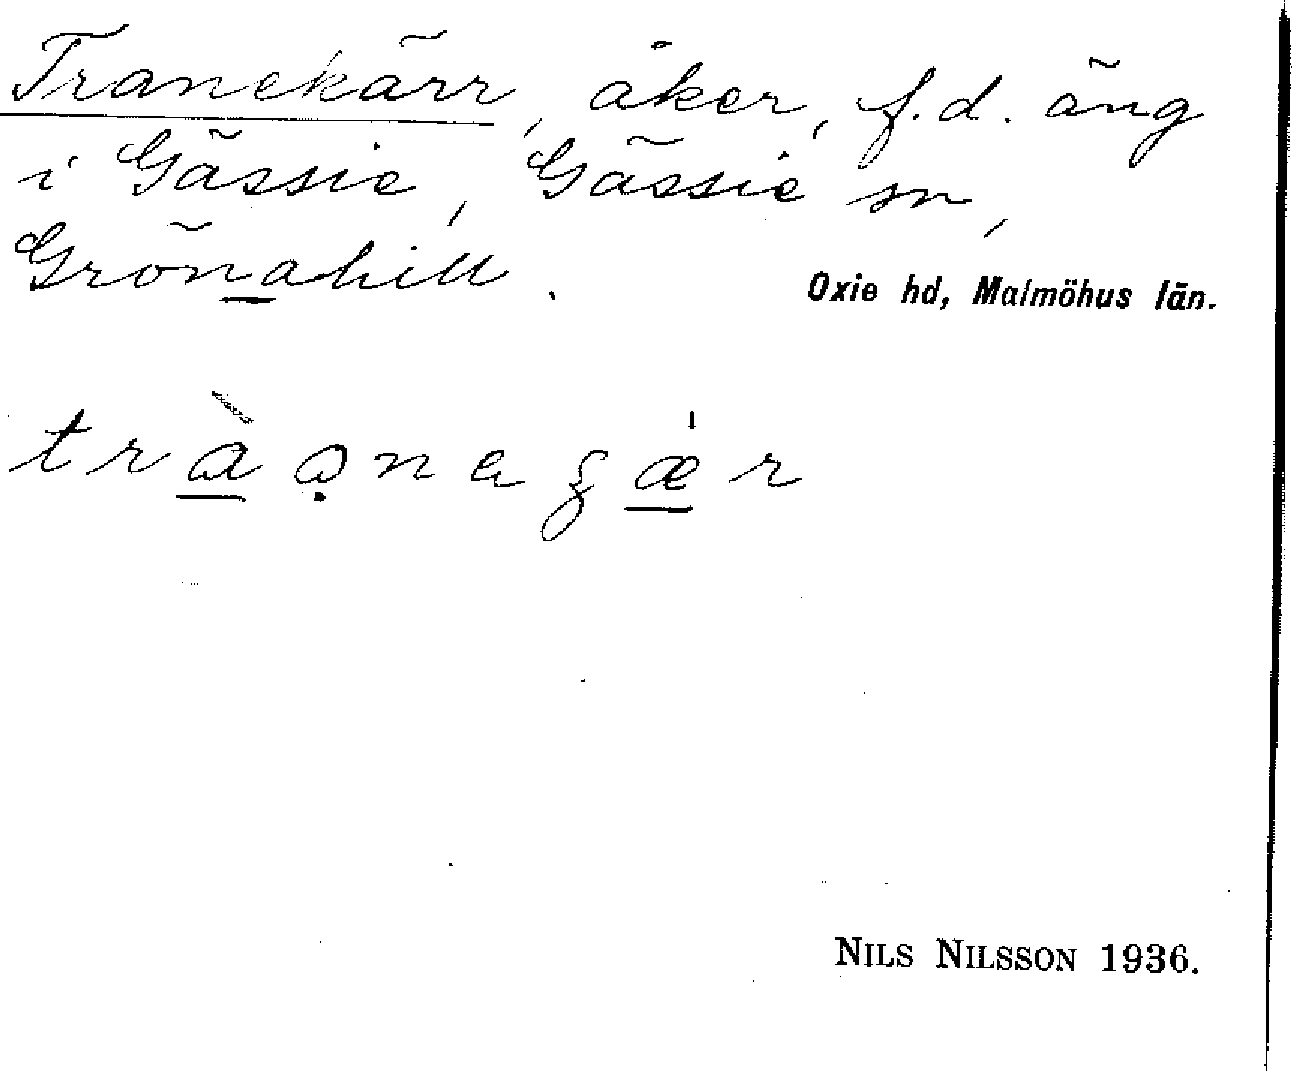 Tranekärr, åker, f.d. äng
i Gässie, Gässie sn,
Grönahill.
Oxie hd, Malmöhus län.
NILS NILSSON 1936.